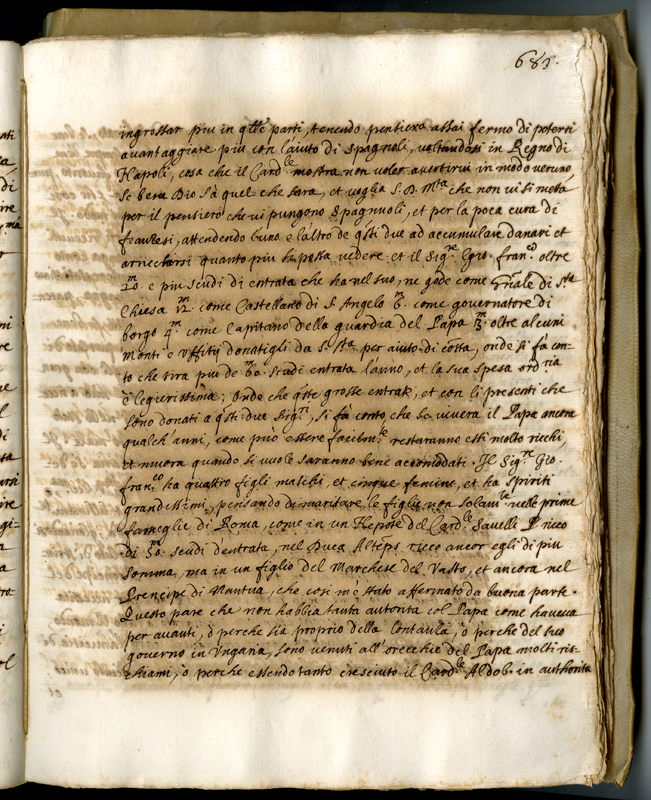 683.
ingrossar piu in q.lle parti, tenendo pensiero assai fermo di potersi
avantaggiare piu con l'aiuto di Spagnoli, voltandosi in Regno di
Napoli, cosa che il Card.le mostra non voler avertirvi in modo veruno
Se bene Dio sà quel che sara, et voglia S. D. M.ta che non vi si metta
per il pensiero che vi pungono Spagnuoli, et per la poca cura di
francesi, attendendo l'uno e l'altro de q.sti due ad accumulare danari et
arricchirsi quanto piu li possa vedere. et il Sig.re Gio. fran.co oltre
10.m e piu scudi di entrata che ha nel suo, ne gode come g.nãle di S.ta
Chiesa 12.m come Castellano di S. Angelo 6.m come governatore di
borgo 4.m come Capitano della guardia del Papa 3.m oltre alcuni
Monti e Uffitij donatigli da S. S.ta per aiuto di costa, onde si fa con-
to che tira piu de 60.m scudi entrata l'anno, et la sua spesa ord.ria
è legierissima; Onde che q.ste grosse entrate, et con li presenti che
sono donati a q.sti due Sig.ri, si fa conto che se vivera il Papa ancora
qualch'anni, come può essere facilm.te restaranno essi molto ricchi,
et muora quando si vuole saranno bene accomodati. Il Sig.re Gio.
fran.co ha quattro figli maschi, et cinque femine, et ha spiriti
grandissimi, pensando di maritare le figlie non solam.te nelle prime
fameglie di Roma, come in un Nepote del Card.le Savelli P ricco
di 50.m scudi d'entrata, nel Duca Altemps ricco ancor egli di piu
somma, ma in un figlio del Marchese del Vasto, et ancora nel
Prencipe di Mantua, che cosi m'è stato affermato da buona parte.
Questo pare che non habbia tanta autorita col Papa come haveva
per avanti, ò perche sia proprio della lontanza, o perche del suo
governo in Ungaria, sono venuti all'orecchie del Papa molti ris-
chiami, ò perche essendo tanto cresciuto il Card.le Aldob. in authorita